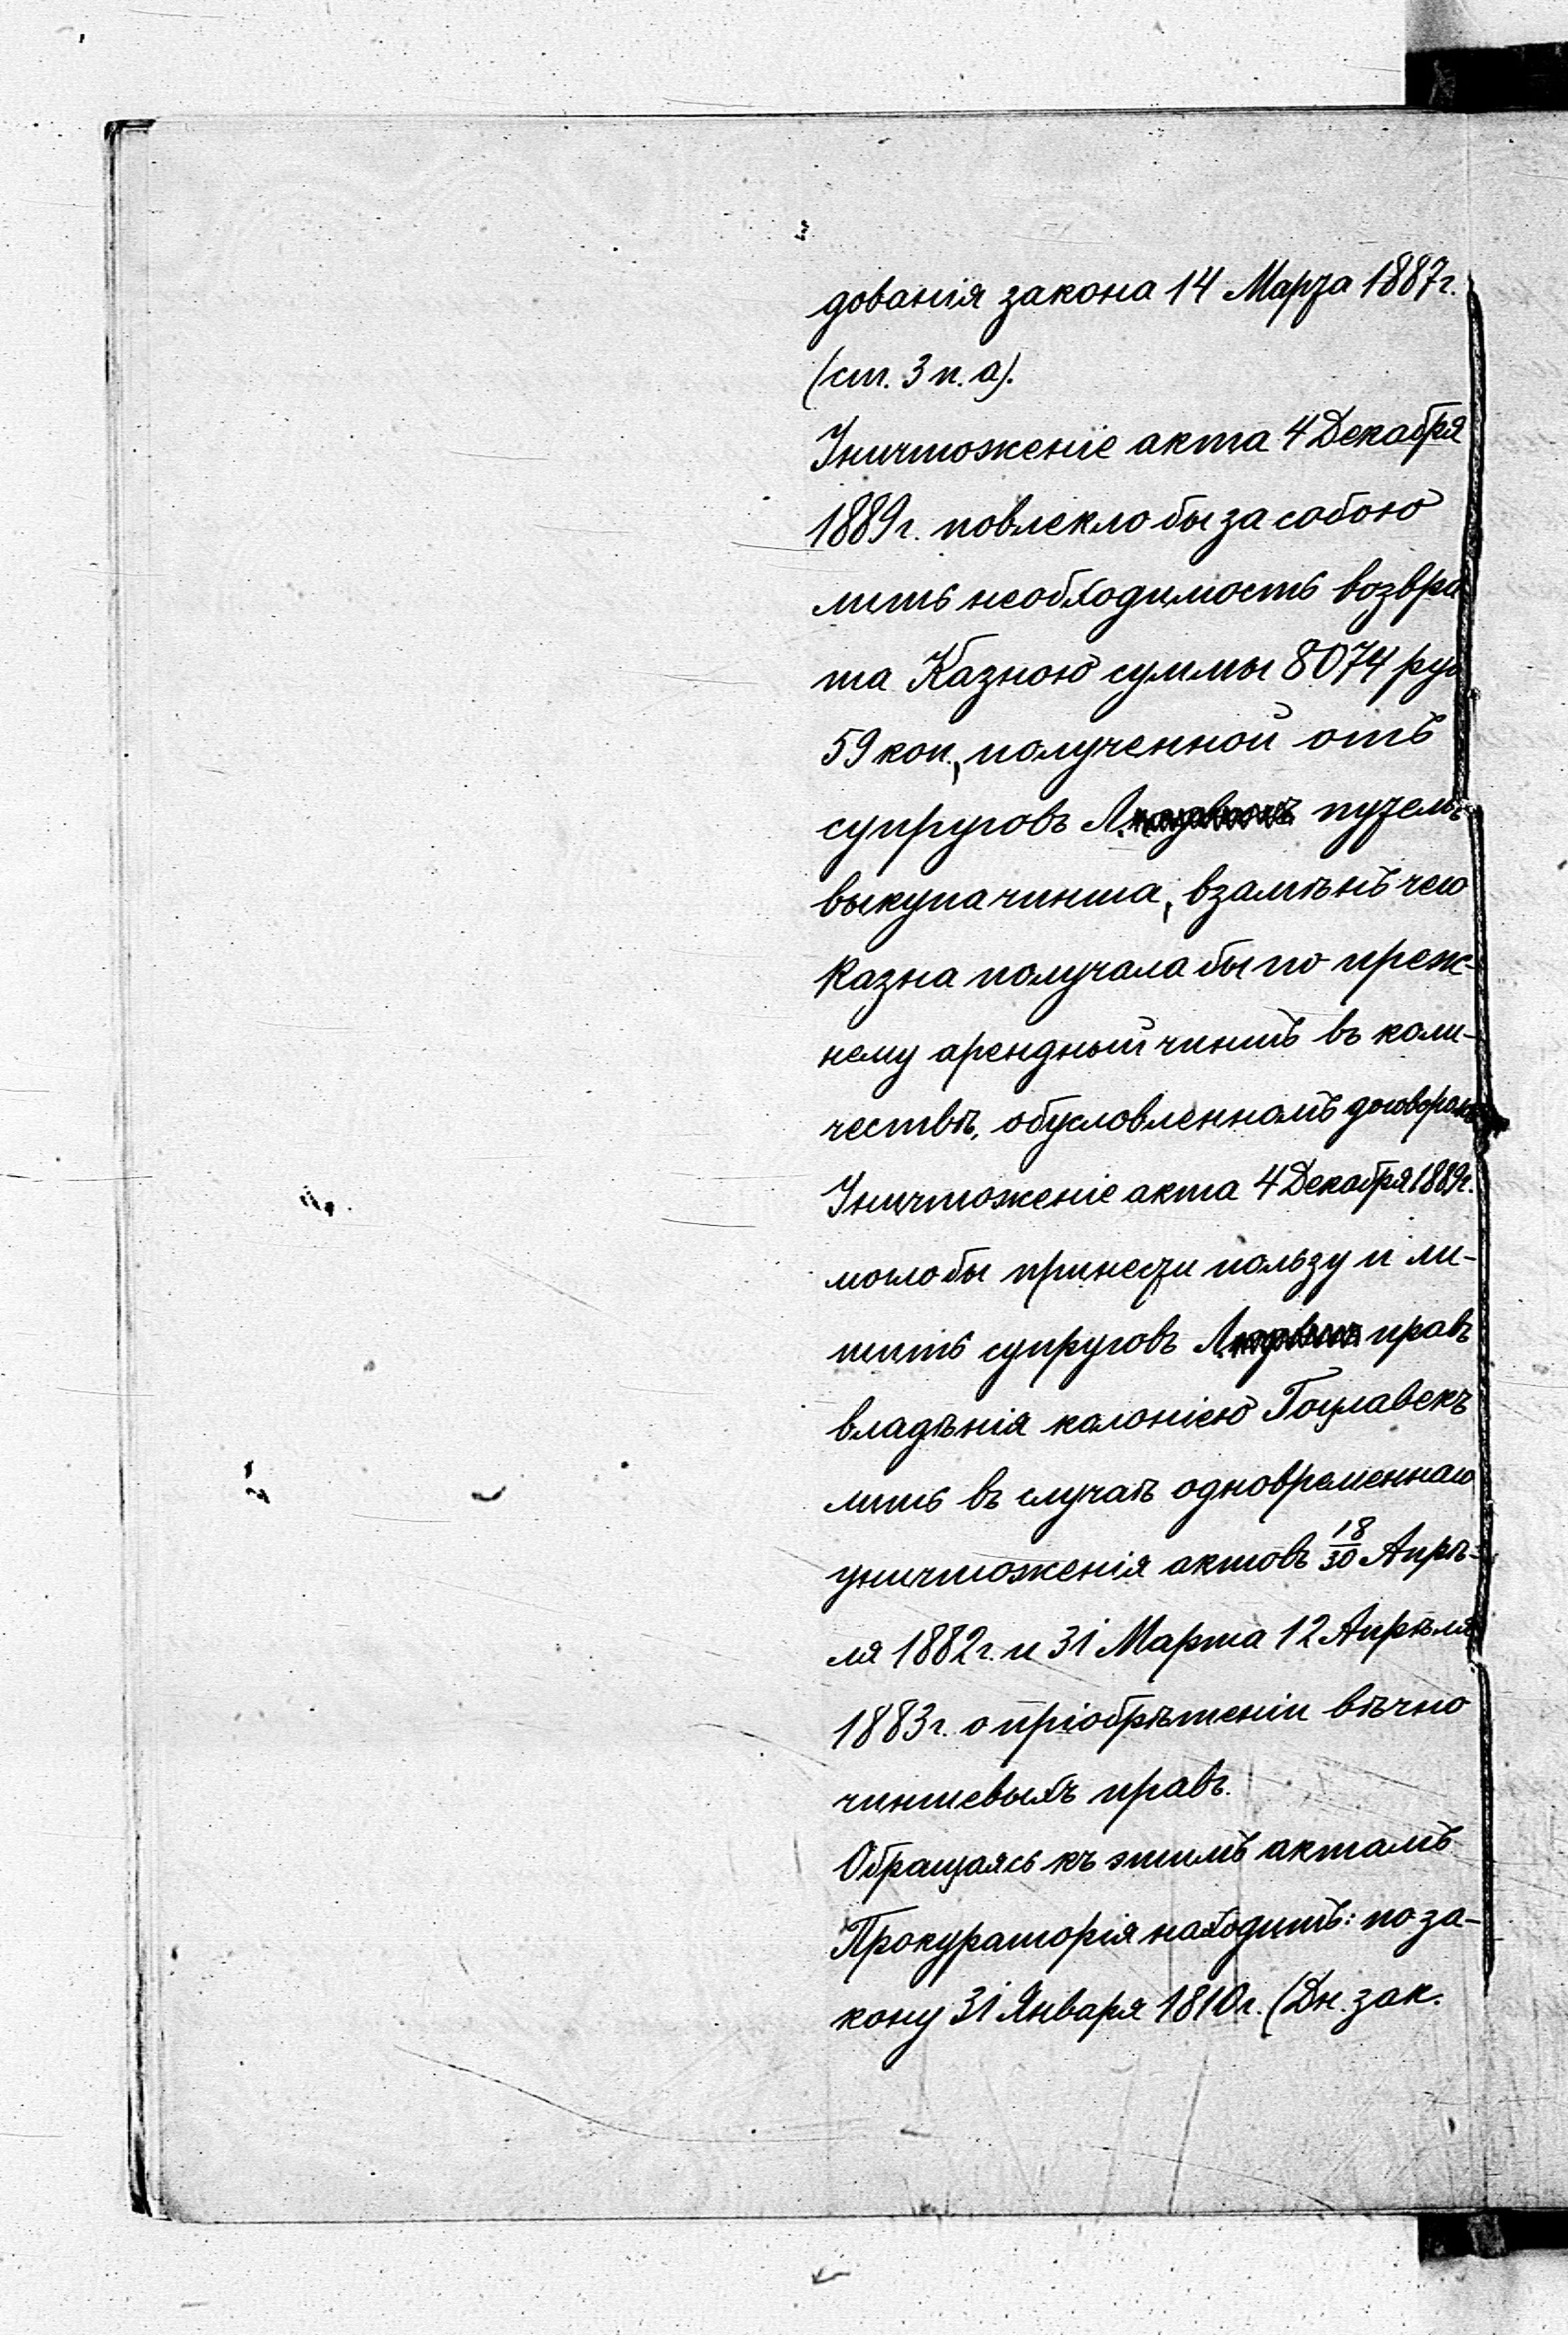 дованія закона 14 Марта 1887г.
(ст. 3 п. а).
Уничтоженіе акта 4 Декабря
1889г. повлекло бы за собою
лишь необходимость возвра
та Казною суммы 8074 руб
59 коп., полученной отъ
супруговъ путемъ
выкупа чинша, взамѣнъ чего
Казна получала бы по преж-
нему арендный чиншъ въ коли-
чествѣ, обусловленномъ договоромъ
Уничтоженіе акта 4 Декабря 1889г.
могло бы принести пользу и ли-
шить супруговъ правъ
владѣнія колоніею Гоцлавекъ
лишь въ случаѣ одновременнаго
уничтоженія актовъ 18/30 Апрѣ-
ля 1882г. и 31 Марта 12 Апрѣля
1883г. о пріобрѣтеніи вѣчно
чиншевыхъ правъ.
Обращаясь къ этимъ актамъ
Прокураторія находитъ: по за-
кону 31 Января 1810г. (Дн. зак.